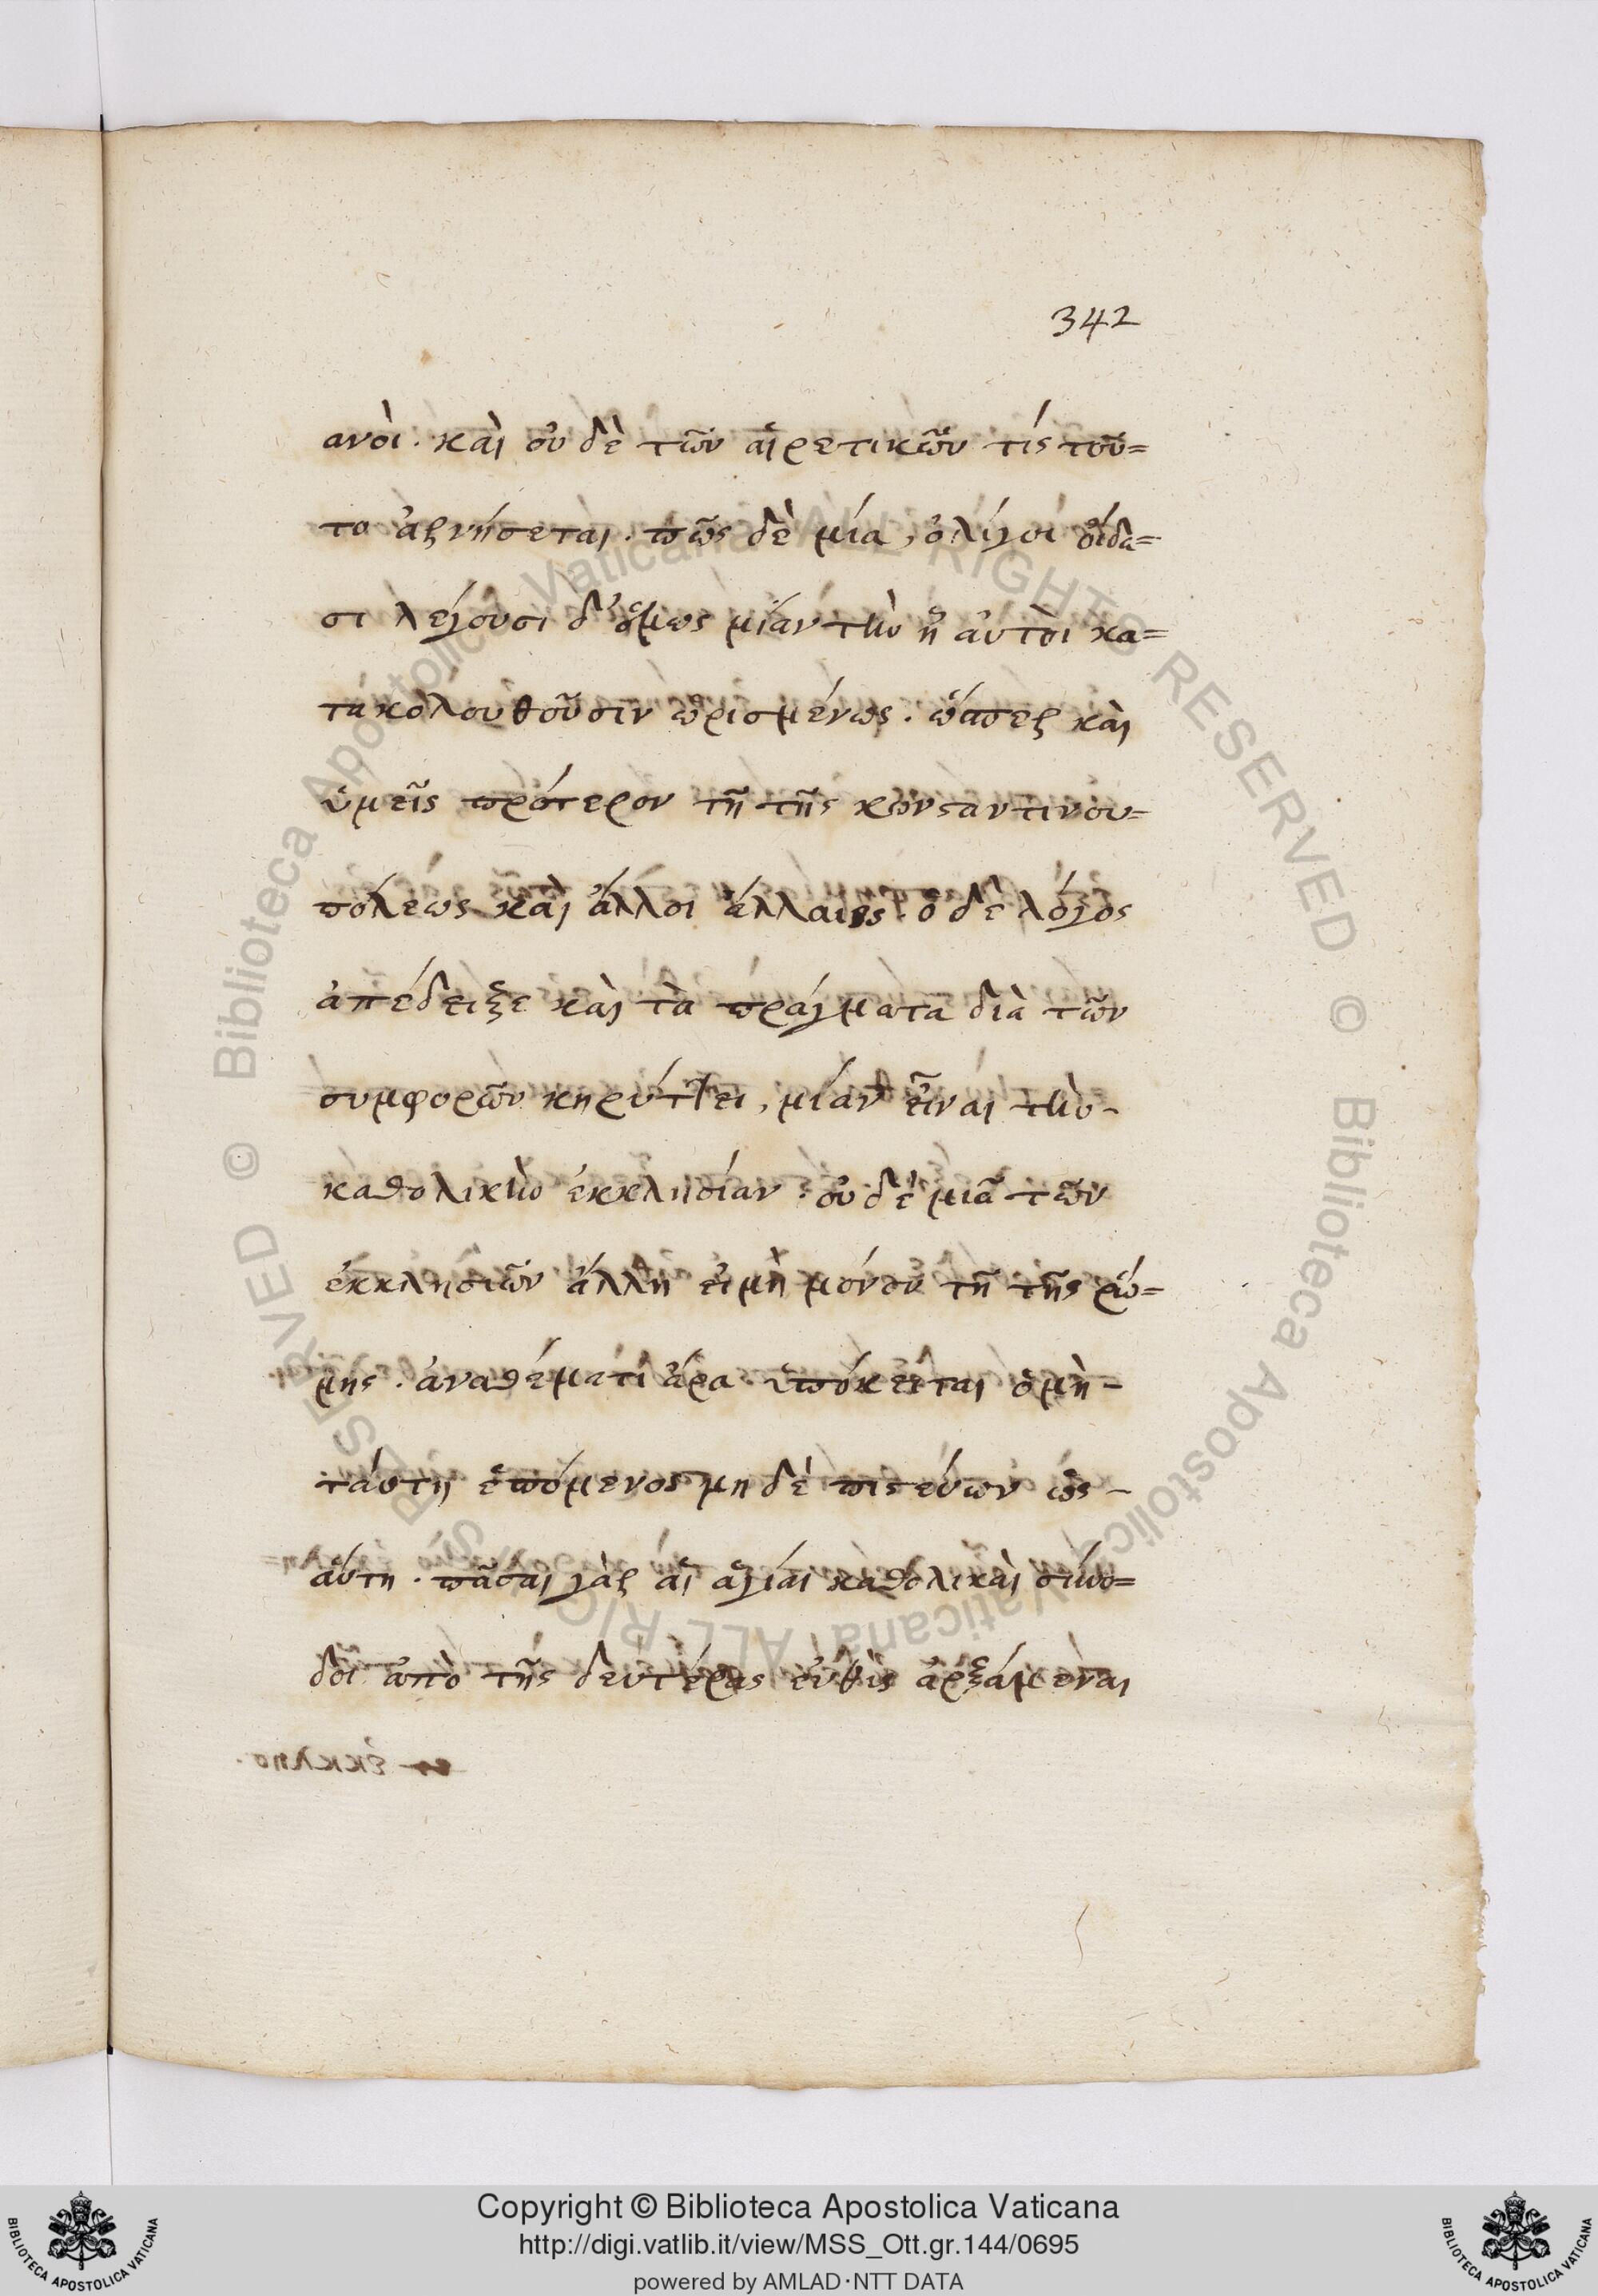 342
ανοὶ. καὶ οὐδὲ τῶν αἱρετικῶν τίς τοῦ=
το ἀρνήσεται. πῶς δὲ μία, ὀλίγοι οἴδα=
σι λέγουσι δ' ὅμως μίαν τὴν ᾗ αὐτοὶ κα=
τακολουθοῦσιν ὡρισμένως. ὥσπερ καὶ
ὑμεῖς πρότερον τῇ τῆς κωνσταντινου=
πόλεως καὶ ἄλλοι ἄλλαις. ὁ δὲ λόγος
ἀπέδειξε καὶ τὰ πράγματα διὰ τῶν
συμφορῶν κηρύττει, μίαν εἶναι τὴν-
καθολικὴν ἐκκλησίαν. οὐδὲ μιᾷ τῶν
ἐκκλησιῶν ἄλλῃ εἰμὴ μόνον τῇ τῆς ῥώ=
μης. ἀναθέματι ἄρα ὑπόκειται ὁ μὴ-
ταύτῃ ἑπόμενος μηδὲ πιστεύων ὡς-
αὕτη. πᾶσαι γὰρ αἱ ἅγίαι καθολικαὶ σύνο=
δοι ἀπὸ τῆς δευτέρας εὐθὺς ἀρξάμεναι
Copyright © Biblioteca Apostolica Vaticana
http://digi.vatlib.it/view/MSS_Ott.gr.144/0695
powered by AMLAD·NTT DATA
BIBLIOTECA APOSTOLICA VATICANA
BIBLIOTECA APOSTOLICA VATICANA
© Biblioteca Apostolica Vaticana ALL RIGHTS RESERVED © Biblioteca Apostolica Vaticana ALL RIGHTS RESERVED